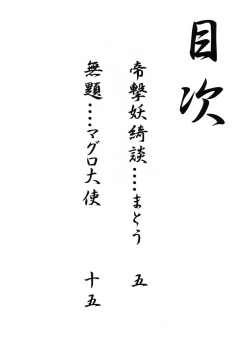 目次
帝撃妖綺談……まとう　五
無題……マグロ大使　十五